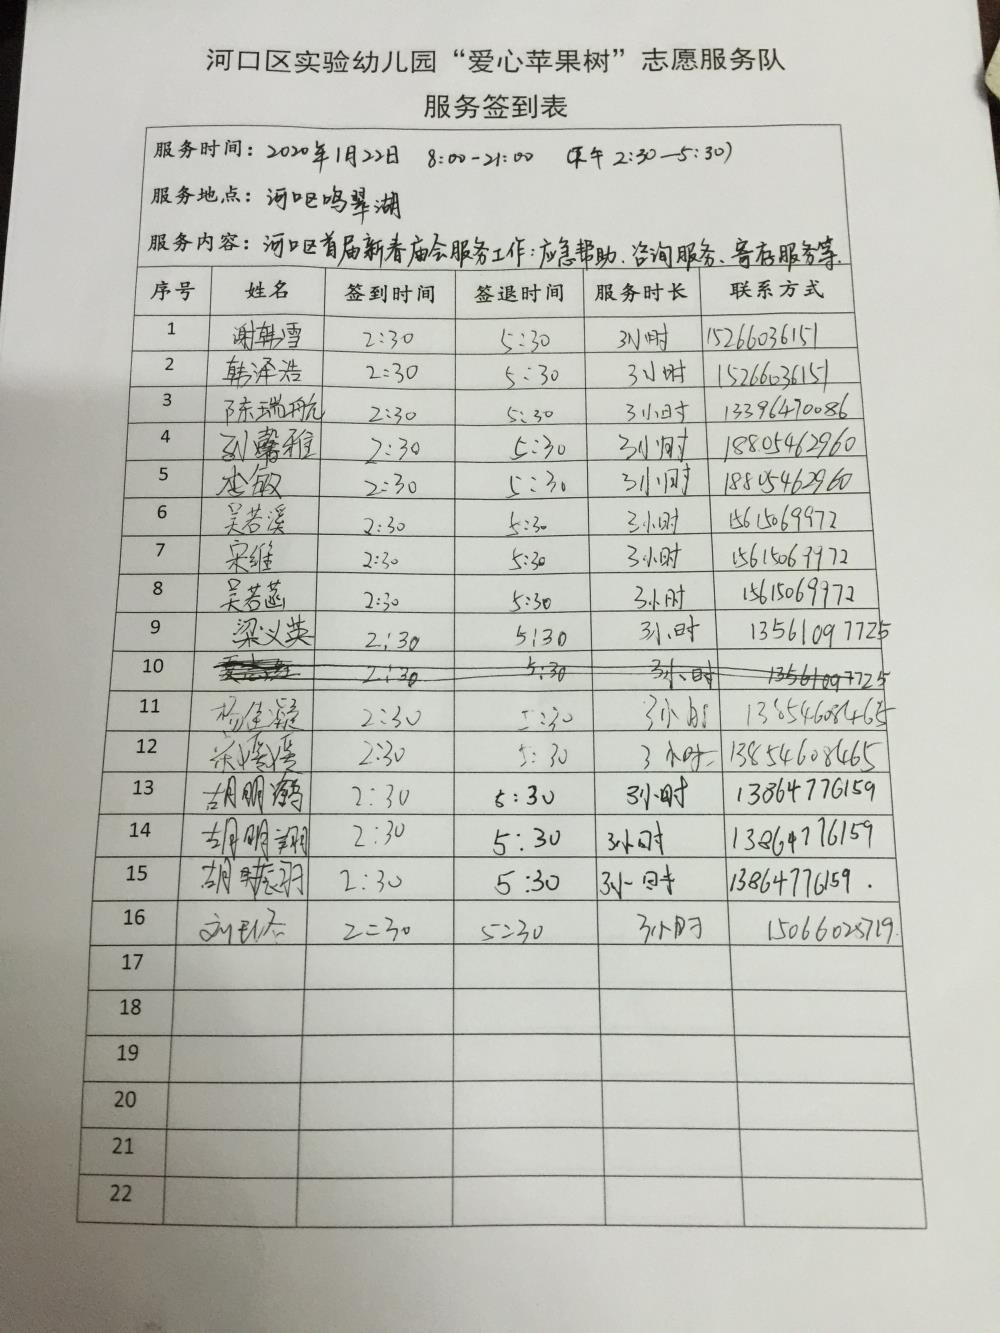 河口区实验幼儿园“爱心苹果树”志愿服务队
服务签到表
服务时间：2020年1月22日 8:00-21:00 (下午2:30-5:30)
服务地点：河口区鸣翠湖
服务内容：河口区首届新春庙会服务工作：应急帮助、咨询服务、寄存服务等.
序号 姓名 签到时间 签退时间 服务时长 联系方式
1 谢韩雪 2:30 5:30 3小时 15266036151
2 韩泽浩 2:30 5:30 3小时 15266036151
3 陈瑞航 2:30 5:30 3小时 13396470086
4 孙馨雅 2:30 5:30 3小时 18805462960
5 李敏 2:30 5:30 3小时 18805462960
6 吴若溪 2:30 5:30 3小时 15615069972
7 宋维 2:30 5:30 3小时 15615069972
8 吴若菡 2:30 5:30 3小时 15615069972
9 梁义英 2:30 5:30 3小时 13561097725
10 2:30 5:30 3小时 13561097725
11 杨佳凝 2:30 5:30 3小时 13854608465
12 2:30 5:30 3小时 13854608465
13 胡明 2:30 5:30 3小时 13864776159
14 胡明翔 2:30 5:30 3小时 13864776159
15 胡振羽 2:30 5:30 3小时 13864776159.
16 2:30 5:30 3小时 15066025719
17
18
19
20
21
22